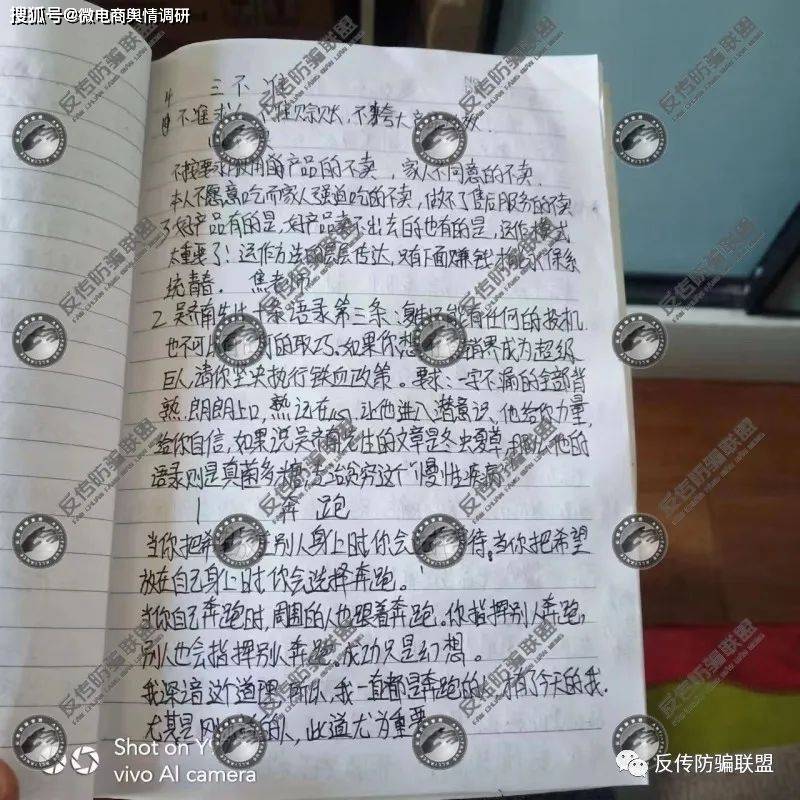 搜狐号@微电商舆情调研
4 三不准
不准求人 不准赊账,不夸大产
不按要求服用的产品的不卖,家人不同意的不卖.
本人不愿意吃而家人强迫吃的不卖,做不了售后服务的不卖
了好产品有的是,好产品卖不出去的也有的是,运作模式
太重要了!运作方法的层层传达,只有下面赚钱才能永保系
统青春. 焦老师
2 吴 先生 十条语录第三条: 能有任何的投机
也不可 的取巧.如果你想 界成为超级
巨人,请你坚决执行铁血政策。要求:一字不漏的全部背
熟.朗朗上口,熟记在心,让他进入潜意识,他给你力量,
给你自信,如果说吴 先生的文章是冬虫夏草,那么他的
语录则是真菌多糖,专治贫穷这个“慢性疾病”
1 奔 跑
当你把希 别人身上时你会 待,当你把希望
放在自己身上时你会选择奔跑。
当你自己奔跑时,周围的人也跟着奔跑。你指挥别人奔跑,
别人也会指挥别人奔跑,成功只是幻想。
我深谙这个道理,所以,我一直都是奔跑的 才有了今天的我.
尤其是 的人,此道尤为重要
Shot on Y
vivo AI camera
反传防骗联盟